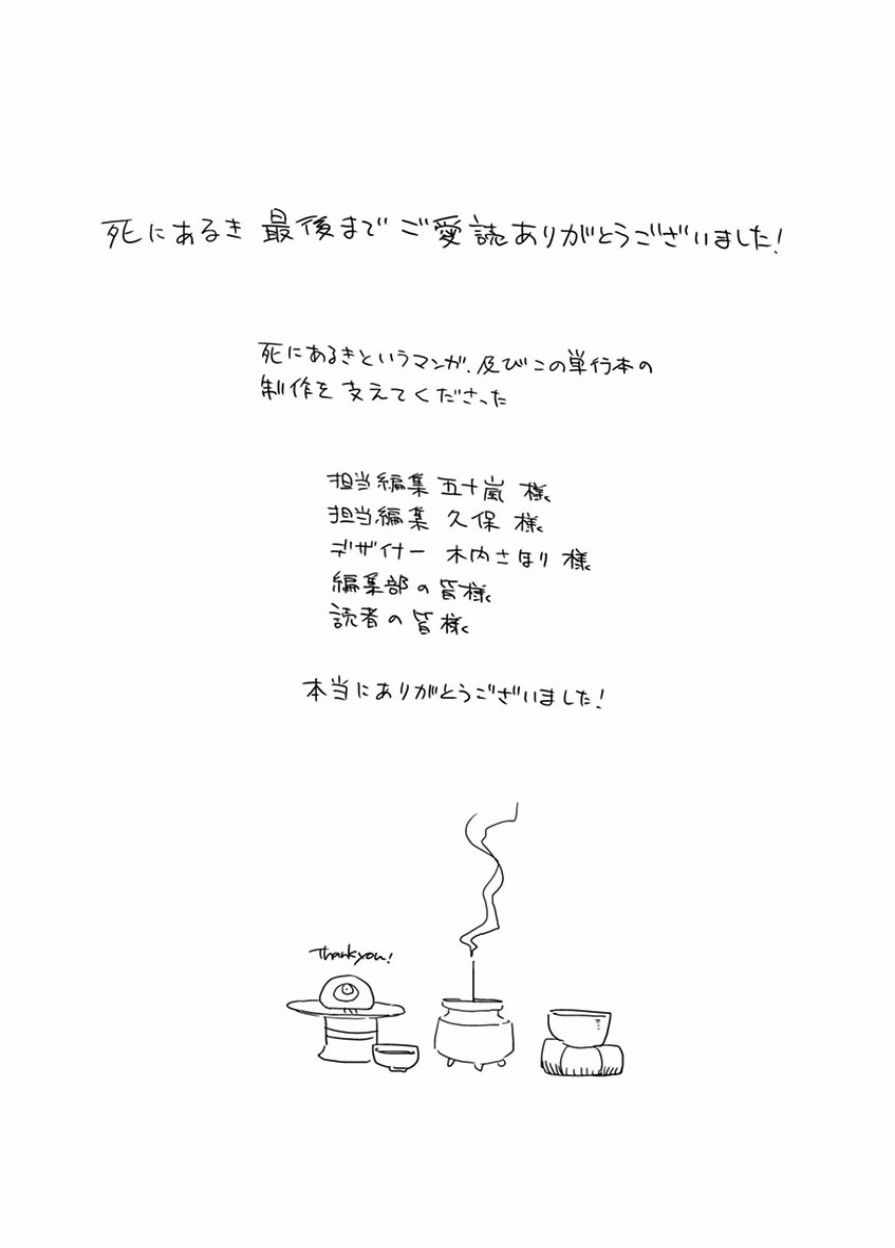 死にあるき 最後まで ご愛読ありがとうございました!
死にあるきというマンガ、及びこの単行本の
制作を支えてくださった
担当編集 五十嵐 様
担当編集 久保 様
デザイナー 木内さほり 様
編集部の皆様
読者の皆様
本当にありがとうございました!
Thank you!